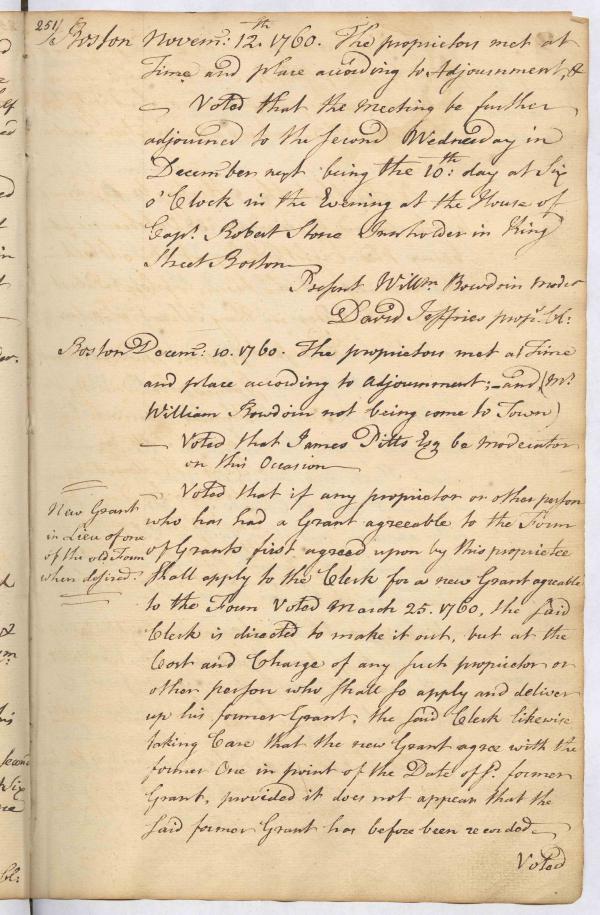 251/
Boston Novem: 12th. 1760. The proprietors met at
Time and place according to Adjournment, &
— Voted that the meeting be further
adjourned to the second Wednesday in
December next being the 10th: day at Six
o'Clock in the Evening at the House of
Capt. Robert Stone Innholder in King
Street Boston—
Present Willm. Bowdoin moder
David Jeffries propr. Cl:
Boston Decem: 10. 1760. The proprietors met at Time
and place according to adjournment; – and (Mr.
William Bowdoin not being come to Town)
— Voted that James Pitts Esq be moderator
on this Occasion—
Voted that if any proprietor or other person
who has had a Grant agreeable to the Form
of Grants first agreed upon by this propriete
shall apply to the Clerk for a new Grant agreable
to the Form Voted March 25. 1760, the said
Clerk is directed to make it out, but at the
Cost and Charge of any such proprietor or
other person who shall so apply and deliver
up his former Grant; the said Clerk likewise
taking Care that the new Grant agree with the
former One in point of the Date of sd. former
Grant, provided it does not appear that the
said former Grant has before been recorded—
Voted
New Grant
in Lieu of one
of the old Form
when desired.